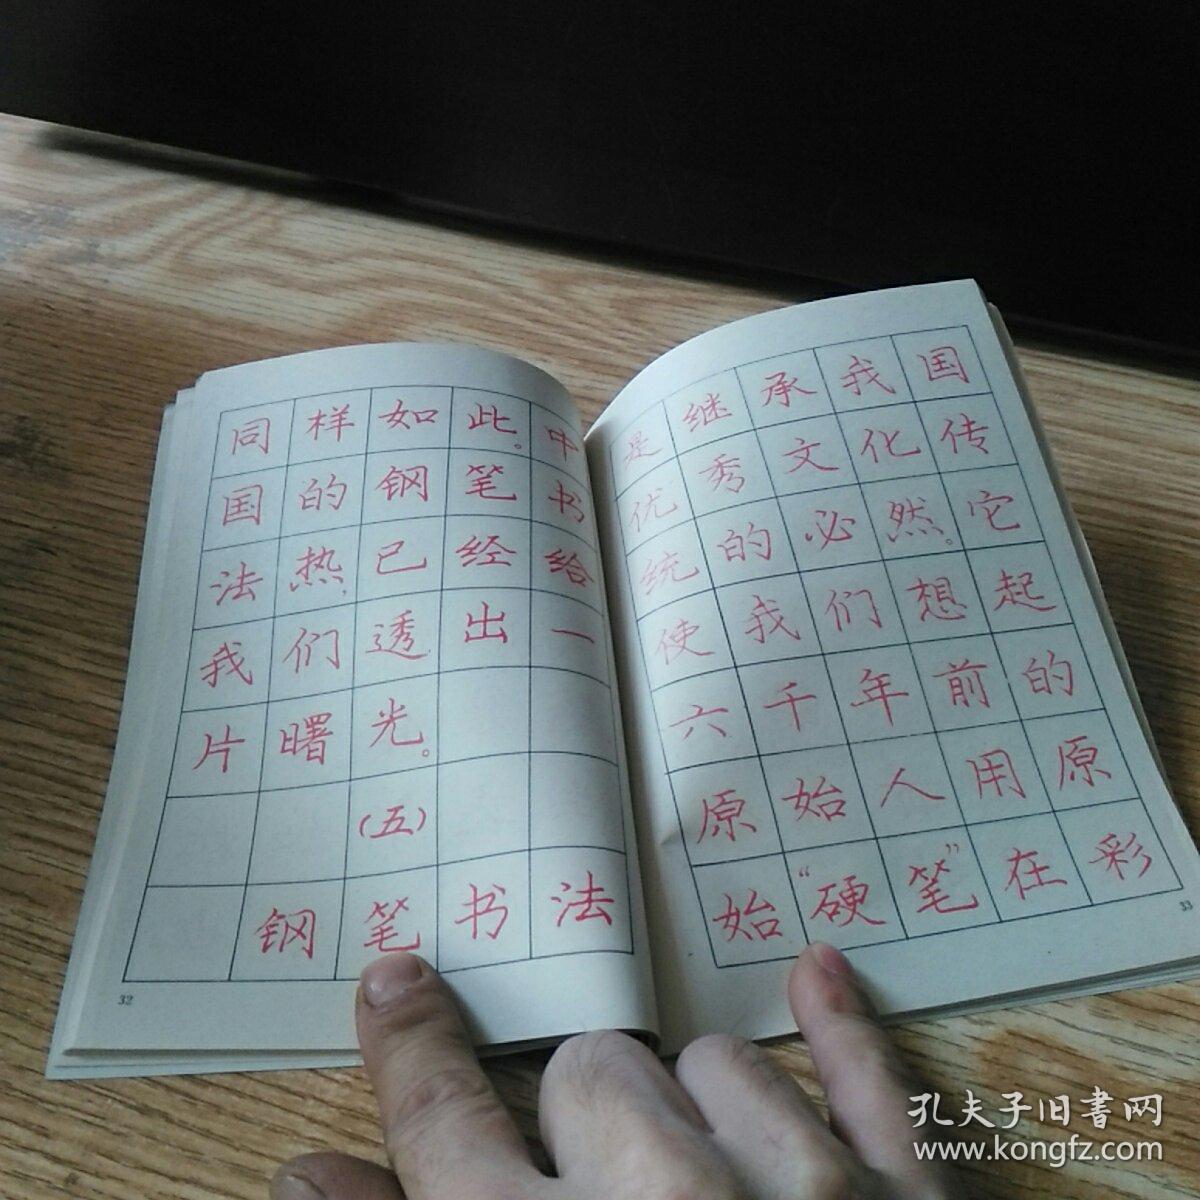 同样如此。中
国的钢笔书
法热已经给
我们透出一
片曙光。
(五)
钢笔书法
32
是继承我国
优秀文化传
统的必然。它
使我们想起
六千年前的
原始人用原
始“硬笔”在彩
33
孔夫子旧書网
www.kongfz.com